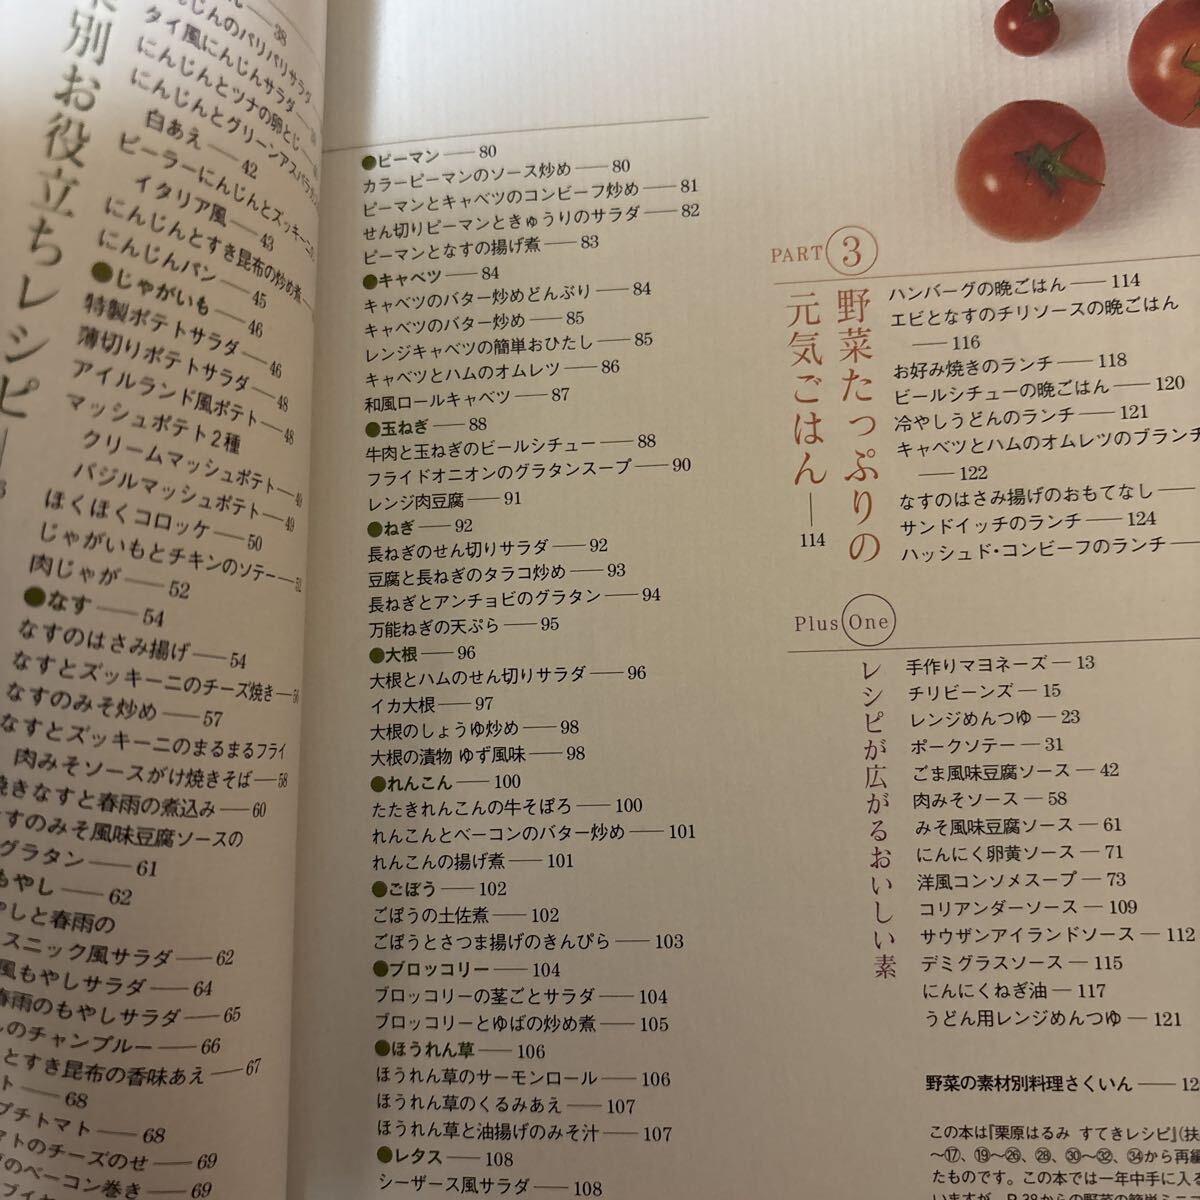 別お役立ちレシピ
38
んじんのパリパリサラダ
タイ風にんじんサラダ
にんじんとツナの卵とじ
にんじんとグリーンアスパラガスの
白あえ — 42
ピーラーにんじんとズッキーニの
イタリア風 — 43
にんじんとすき昆布の炒め煮
にんじんパン — 45
●じゃがいも — 46
特製ポテトサラダ — 46
薄切りポテトサラダ — 48
アイルランド風ポテト — 48
マッシュポテト2種
クリームマッシュポテト — 49
バジルマッシュポテト — 49
ほくほくコロッケ — 50
じゃがいもとチキンのソテー — 52
肉じゃが — 52
●なす — 54
なすのはさみ揚げ — 54
なすとズッキーニのチーズ焼き — 56
なすのみそ炒め — 57
なすとズッキーニのまるまるフライ
肉みそソースがけ焼きそば — 58
焼きなすと春雨の煮込み — 60
すのみそ風味豆腐ソースの
グラタン — 61
もやし — 62
やしと春雨の
スニック風サラダ — 62
風もやしサラダ — 64
春雨のもやしサラダ — 65
しのチャンプルー — 66
とすき昆布の香味あえ — 67
ト — 68
プチトマト — 68
マトのチーズのせ — 69
のベーコン巻き — 69
●ピーマン — 80
カラーピーマンのソース炒め — 80
ピーマンとキャベツのコンビーフ炒め — 81
せん切りピーマンときゅうりのサラダ — 82
ピーマンとなすの揚げ煮 — 83
●キャベツ — 84
キャベツのバター炒めどんぶり — 84
キャベツのバター炒め — 85
レンジキャベツの簡単おひたし — 85
キャベツとハムのオムレツ — 86
和風ロールキャベツ — 87
●玉ねぎ — 88
牛肉と玉ねぎのビールシチュー — 88
フライドオニオンのグラタンスープ — 90
レンジ肉豆腐 — 91
●ねぎ — 92
長ねぎのせん切りサラダ — 92
豆腐と長ねぎのタラコ炒め — 93
長ねぎとアンチョビのグラタン — 94
万能ねぎの天ぷら — 95
●大根 — 96
大根とハムのせん切りサラダ — 96
イカ大根 — 97
大根のしょうゆ炒め — 98
大根の漬物 ゆず風味 — 98
●れんこん — 100
たたきれんこんの牛そぼろ — 100
れんこんとベーコンのバター炒め — 101
れんこんの揚げ煮 — 101
●ごぼう — 102
ごぼうの土佐煮 — 102
ごぼうとさつま揚げのきんぴら — 103
●ブロッコリー — 104
ブロッコリーの茎ごとサラダ — 104
ブロッコリーとゆばの炒め煮 — 105
●ほうれん草 — 106
ほうれん草のサーモンロール — 106
ほうれん草のくるみあえ — 107
ほうれん草と油揚げのみそ汁 — 107
●レタス — 108
シーザース風サラダ — 108
PART 3
野菜たっぷりの
元気ごはん — 114
ハンバーグの晩ごはん — 114
エビとなすのチリソースの晩ごはん
— 116
お好み焼きのランチ — 118
ビールシチューの晩ごはん — 120
冷やしうどんのランチ — 121
キャベツとハムのオムレツのブランチ
— 122
なすのはさみ揚げのおもてなし —
サンドイッチのランチ — 124
ハッシュド・コンビーフのランチ —
Plus One
レシピが広がるおいしい素
手作りマヨネーズ — 13
チリビーンズ — 15
レンジめんつゆ — 23
ポークソテー — 31
ごま風味豆腐ソース — 42
肉みそソース — 58
みそ風味豆腐ソース — 61
にんにく卵黄ソース — 71
洋風コンソメスープ — 73
コリアンダーソース — 109
サウザンアイランドソース — 112
デミグラスソース — 115
にんにくねぎ油 — 117
うどん用レンジめんつゆ — 121
野菜の素材別料理さくいん — 12
この本は『栗原はるみ すてきレシピ』(扶
〜⑰、⑲〜㉖、㉘、㉚〜㉜、㉞から再編
たものです。この本では一年中手に入
いますが、P.38からの野菜の簡単